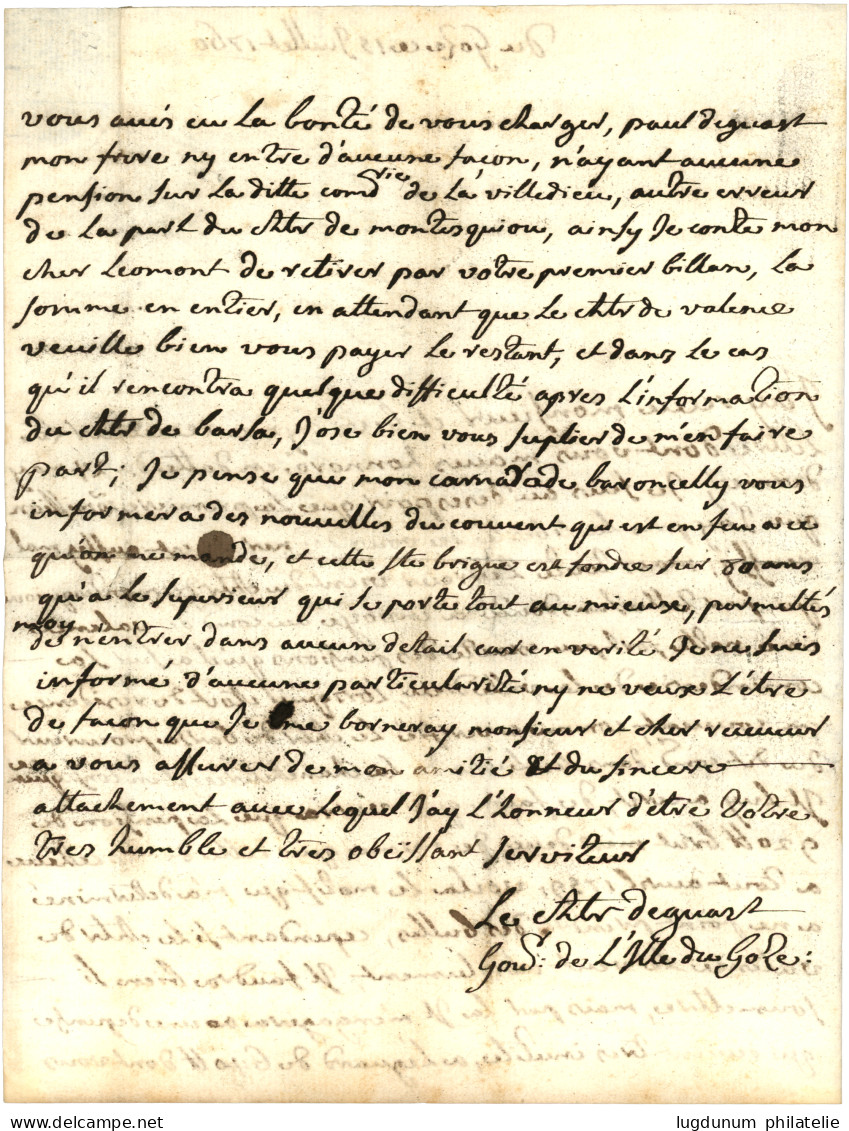 vous avés eu La bonté de vous charger, paul deguast
mon frere ny entre d'aucune façon, n'ayant aucune
pension sur La ditte comd^rie de La villedieu, autre erreur
de La part du chlr de montesquiou, ainsy Je conte mon
cher Leomont de retirer par votre premier billan, La
somme en entier, en attendant que Le chlr de valence
veuille bien vous payer Le restant, et dans Le cas
qu'il rencontra quelque difficulté apres L'information
du chlr de barsa, J'ose bien vous suplier de m'en faire
part; Je pense que mon camarade baroncelly vous
informera des nouvelles du couvent qui est en feu a ce
qu'on me mande, et cette ste brigue est fondée sur 80 ans
qu'a le superieur qui se porte tout au mieux, permettés
moy
de n'entrer dans aucun detail car en verité Je ne suis
informé d'aucune particularité ny ne veux L'être
de façon que Je me borneray monsieur et cher receveur
a vous assurer de mon amitié et du sincere
attachement avec Lequel J'ay L'honneur d'être Votre
tres humble et tres obeïssant serviteur
Le chlr deguast
Gouv.r de L'Isle du Goze:
lugdunum philatelie